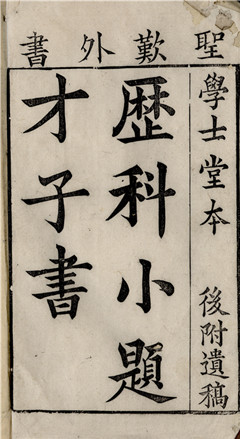 聖歎外書
學士堂本 後附遺稿
歷科小題
才子書